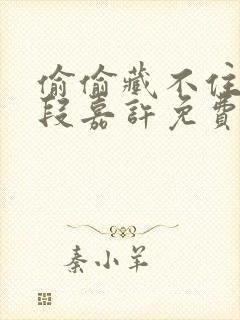 偷偷藏不住
段嘉許免費
秦小羊